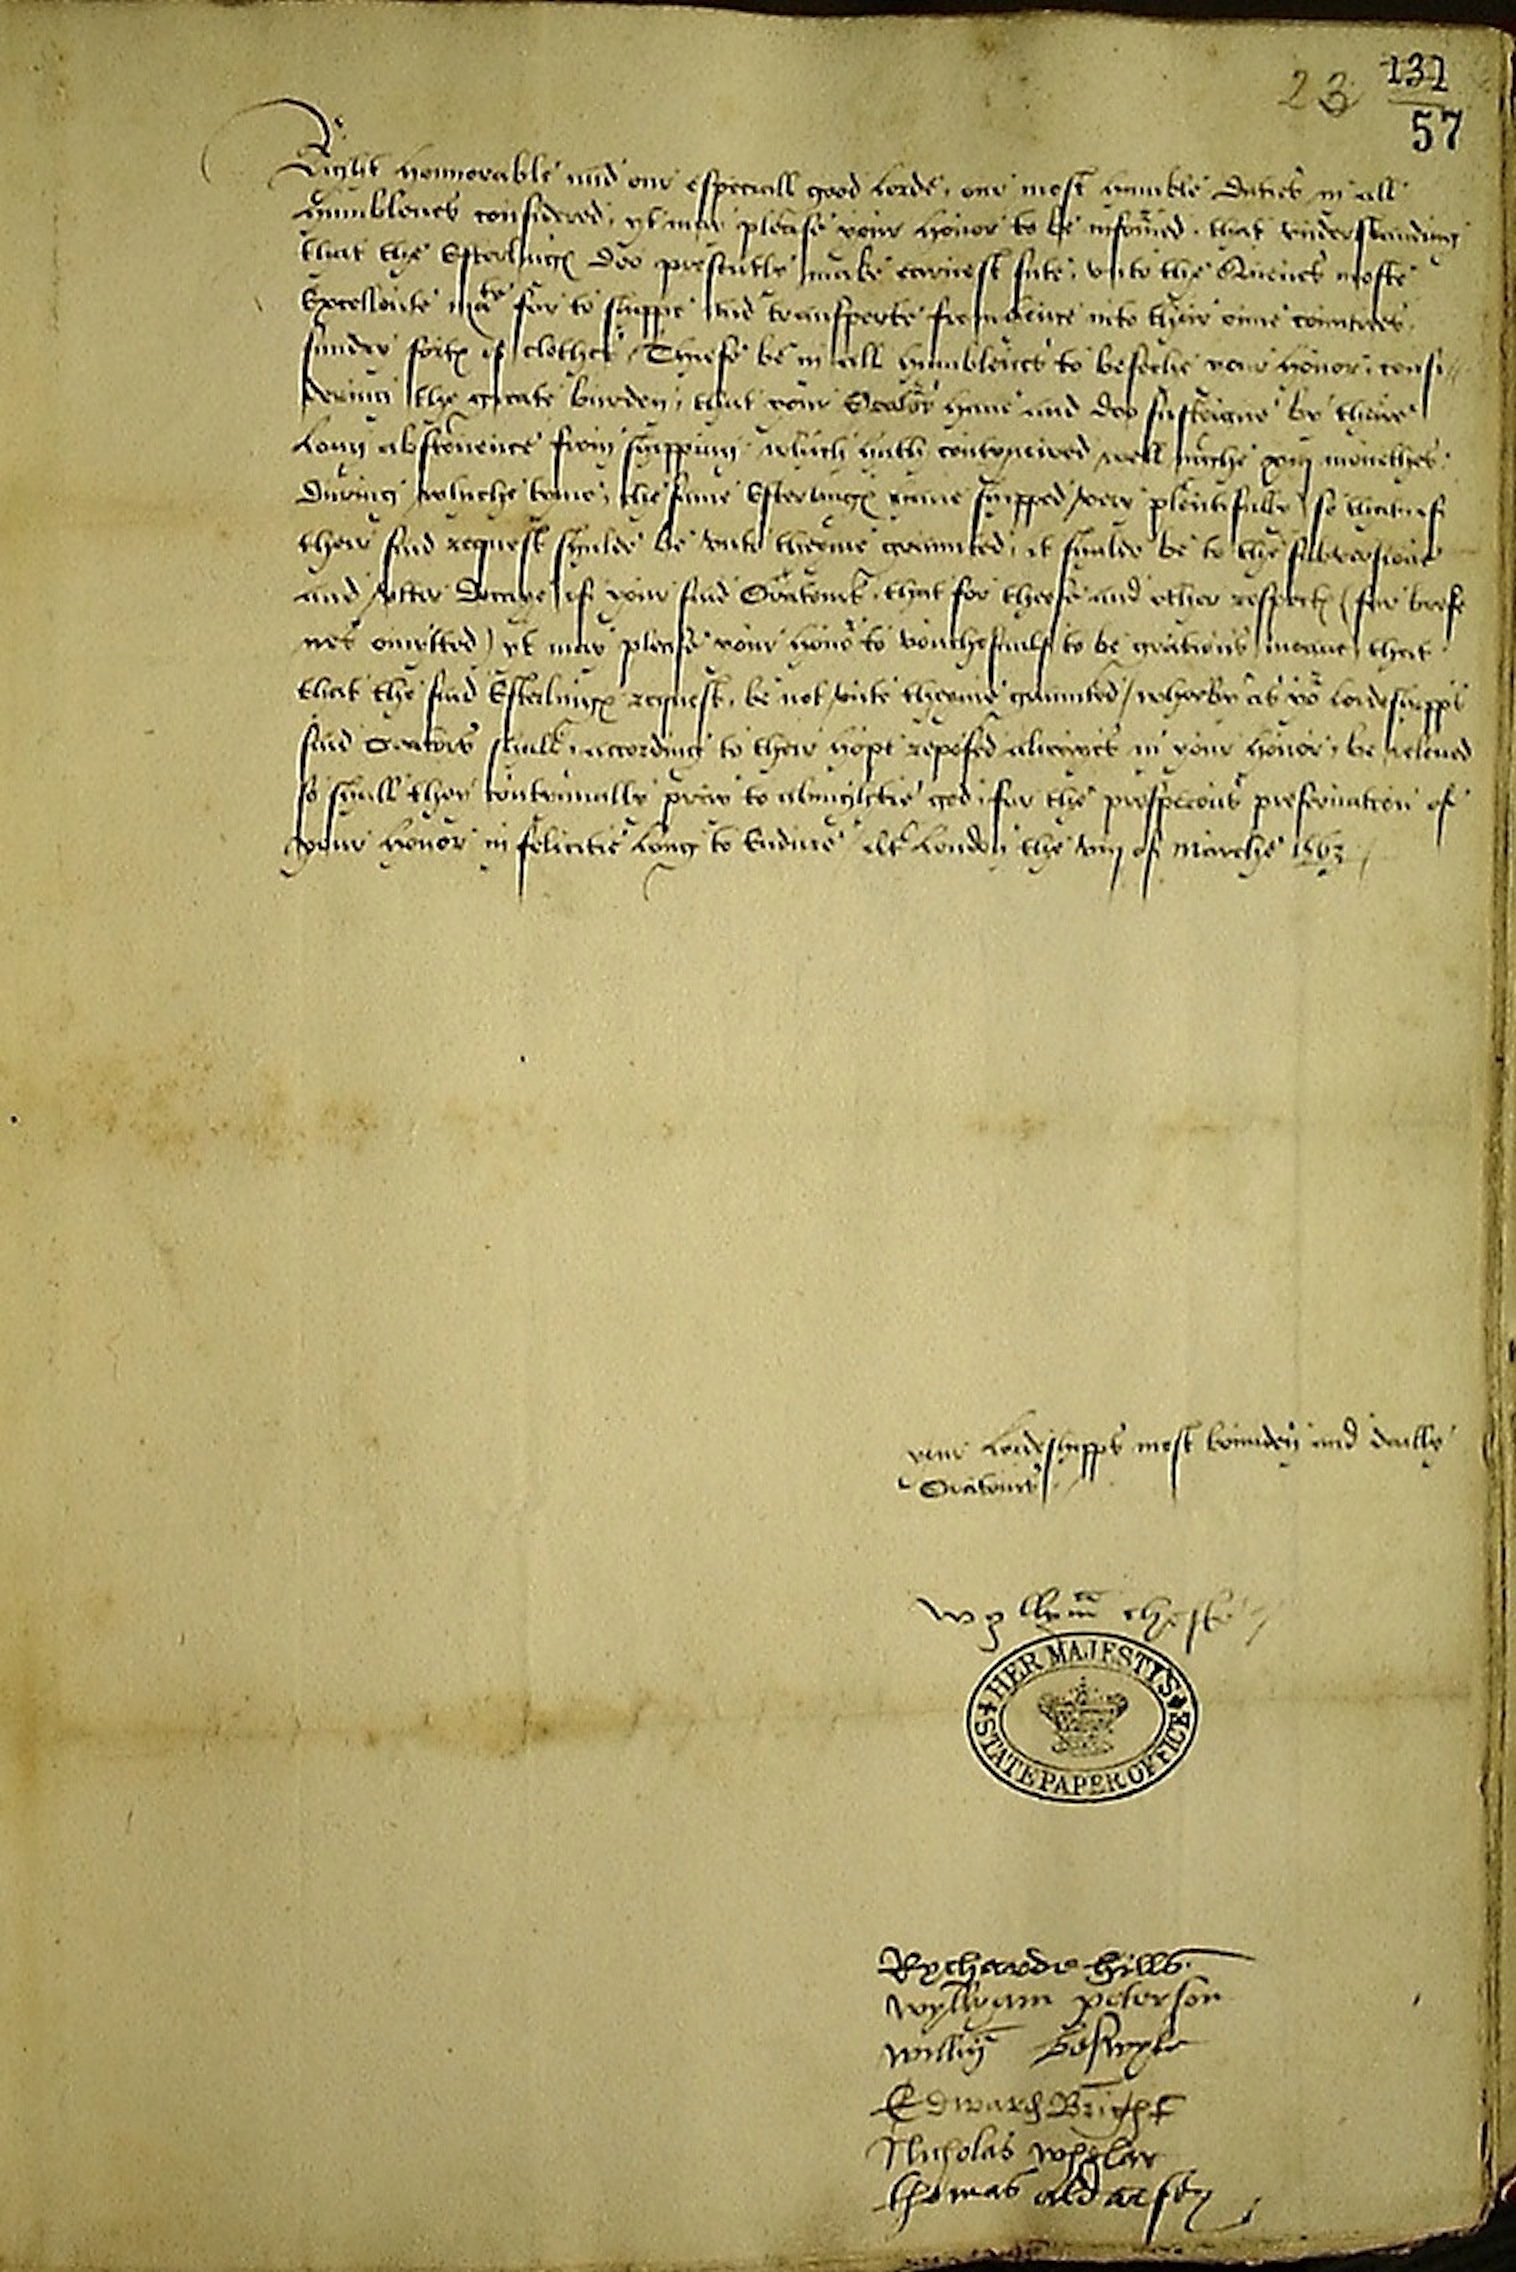 23 131
57
Right honnorable and our especiall good Lorde, our most humble Duties in all
humblenes considered, yt may please your honor to be infourmed, that vnderstanding
that the Esterlings doo presentlie make earnest sute, vnto the Quenes moste
Excellente Matie for to shippe and transporte from hence into their owne countrees
sundry sorts of clothes, Thiese be in all humblenes to beseche your honor, consi-
deringe the greate burden, that your Orators haue and doo susteigne by theire
Long abstenence from shipping which hath contynewed well nighe xiij monethes
During whiche tyme, the same Esterlings haue shipped very plentifully, so that if
their said request shulde be vnto theyme graunted, it shulde be to the subversione
and vtter decaye of your said Oratours, that for theese and other respects (for brefe
nes omitted) yt may please your honor to vouchesaulf to be gratious meane that
that the said Esterlings request, be not vnto theyme graunted, wherby as yor Lordeshipps
said Orators shall, according to their hope reposed alwayes in your honor, be releued
so shall they contynually pray to almightie god, for the prosperous preseruation of
your honor in felicitie Long to Endure At London the viij of Marche 1563
your Lordeshipps most bounden and dailly
Oratours
Wyllyam Cheste
HER MAJESTY'S
STATE PAPER OFFICE
Rycharde Hills
Wyllyam peterson
Willm
Edward Bright
Nicholas Whelar
Thomas aldarsey